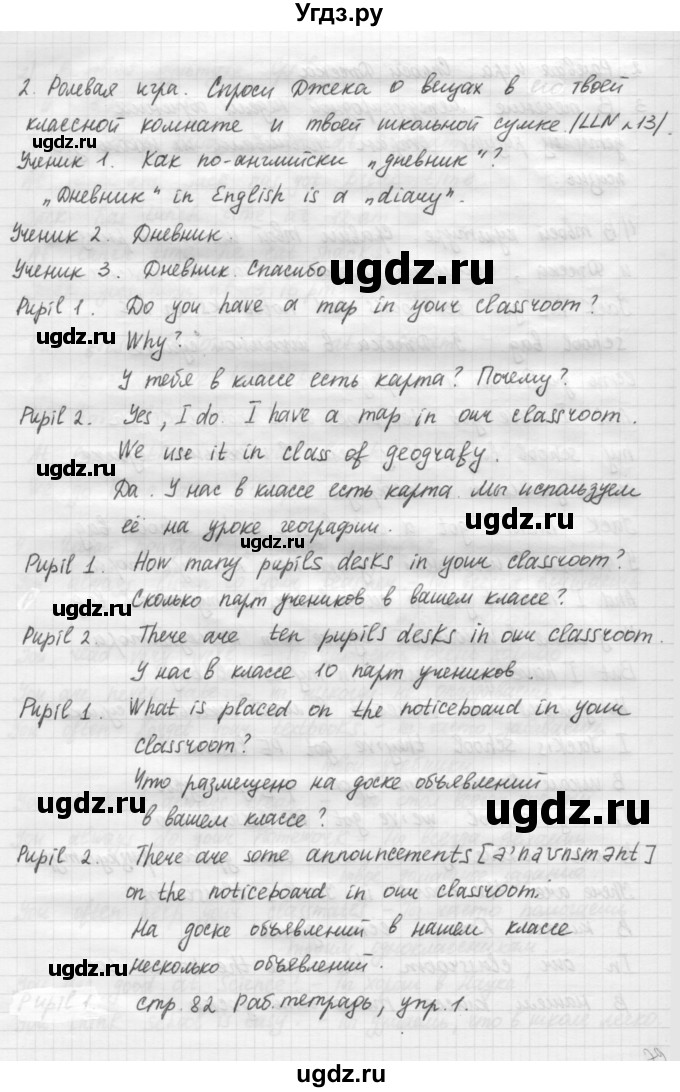 Угдз.ру
2. Ролевая игра. Спроси Джека о вещах в твоей
классной комнате и твоей школьной сумке /LLN №13/.
gdz.ru
Ученик 1. Как по-английски „дневник“?
„Дневник“ in English is a „diary“.
Ученик 2. Дневник.
Ученик 3. Дневник. Спасибо
ugdz.ru
Pupil 1. Do you have a map in your classroom?
ugdz.ru
Why?
У тебя в классе есть карта? Почему?
Pupil 2. Yes, I do. I have a map in our classroom.
We use it in class of geografy.
ugdz.ru
Да. У нас в классе есть карта. Мы используем
ugdz.ru
её на уроке географии.
ugdz.ru
Pupil 1. How many pupils desks in your classroom?
Сколько парт учеников в вашем классе?
ugdz.ru
Pupil 2 There are ten pupils desks in our classroom.
У нас в классе 10 парт учеников.
Pupil 1. What is placed on the noticeboard in your
classroom?
Что размещено на доске объявлений
ugdz.ru
в вашем классе?
ugdz.ru
Pupil 2. There are some announcements [ə'naʊnsmənt]
on the noticeboard in our classroom.
На доске объявлений в нашем классе
ugdz.ru
несколько объявлений.
Pupil 1.
стр. 82 Раб. тетрадь, упр. 1.
ugdz.ru
Угдз.ру